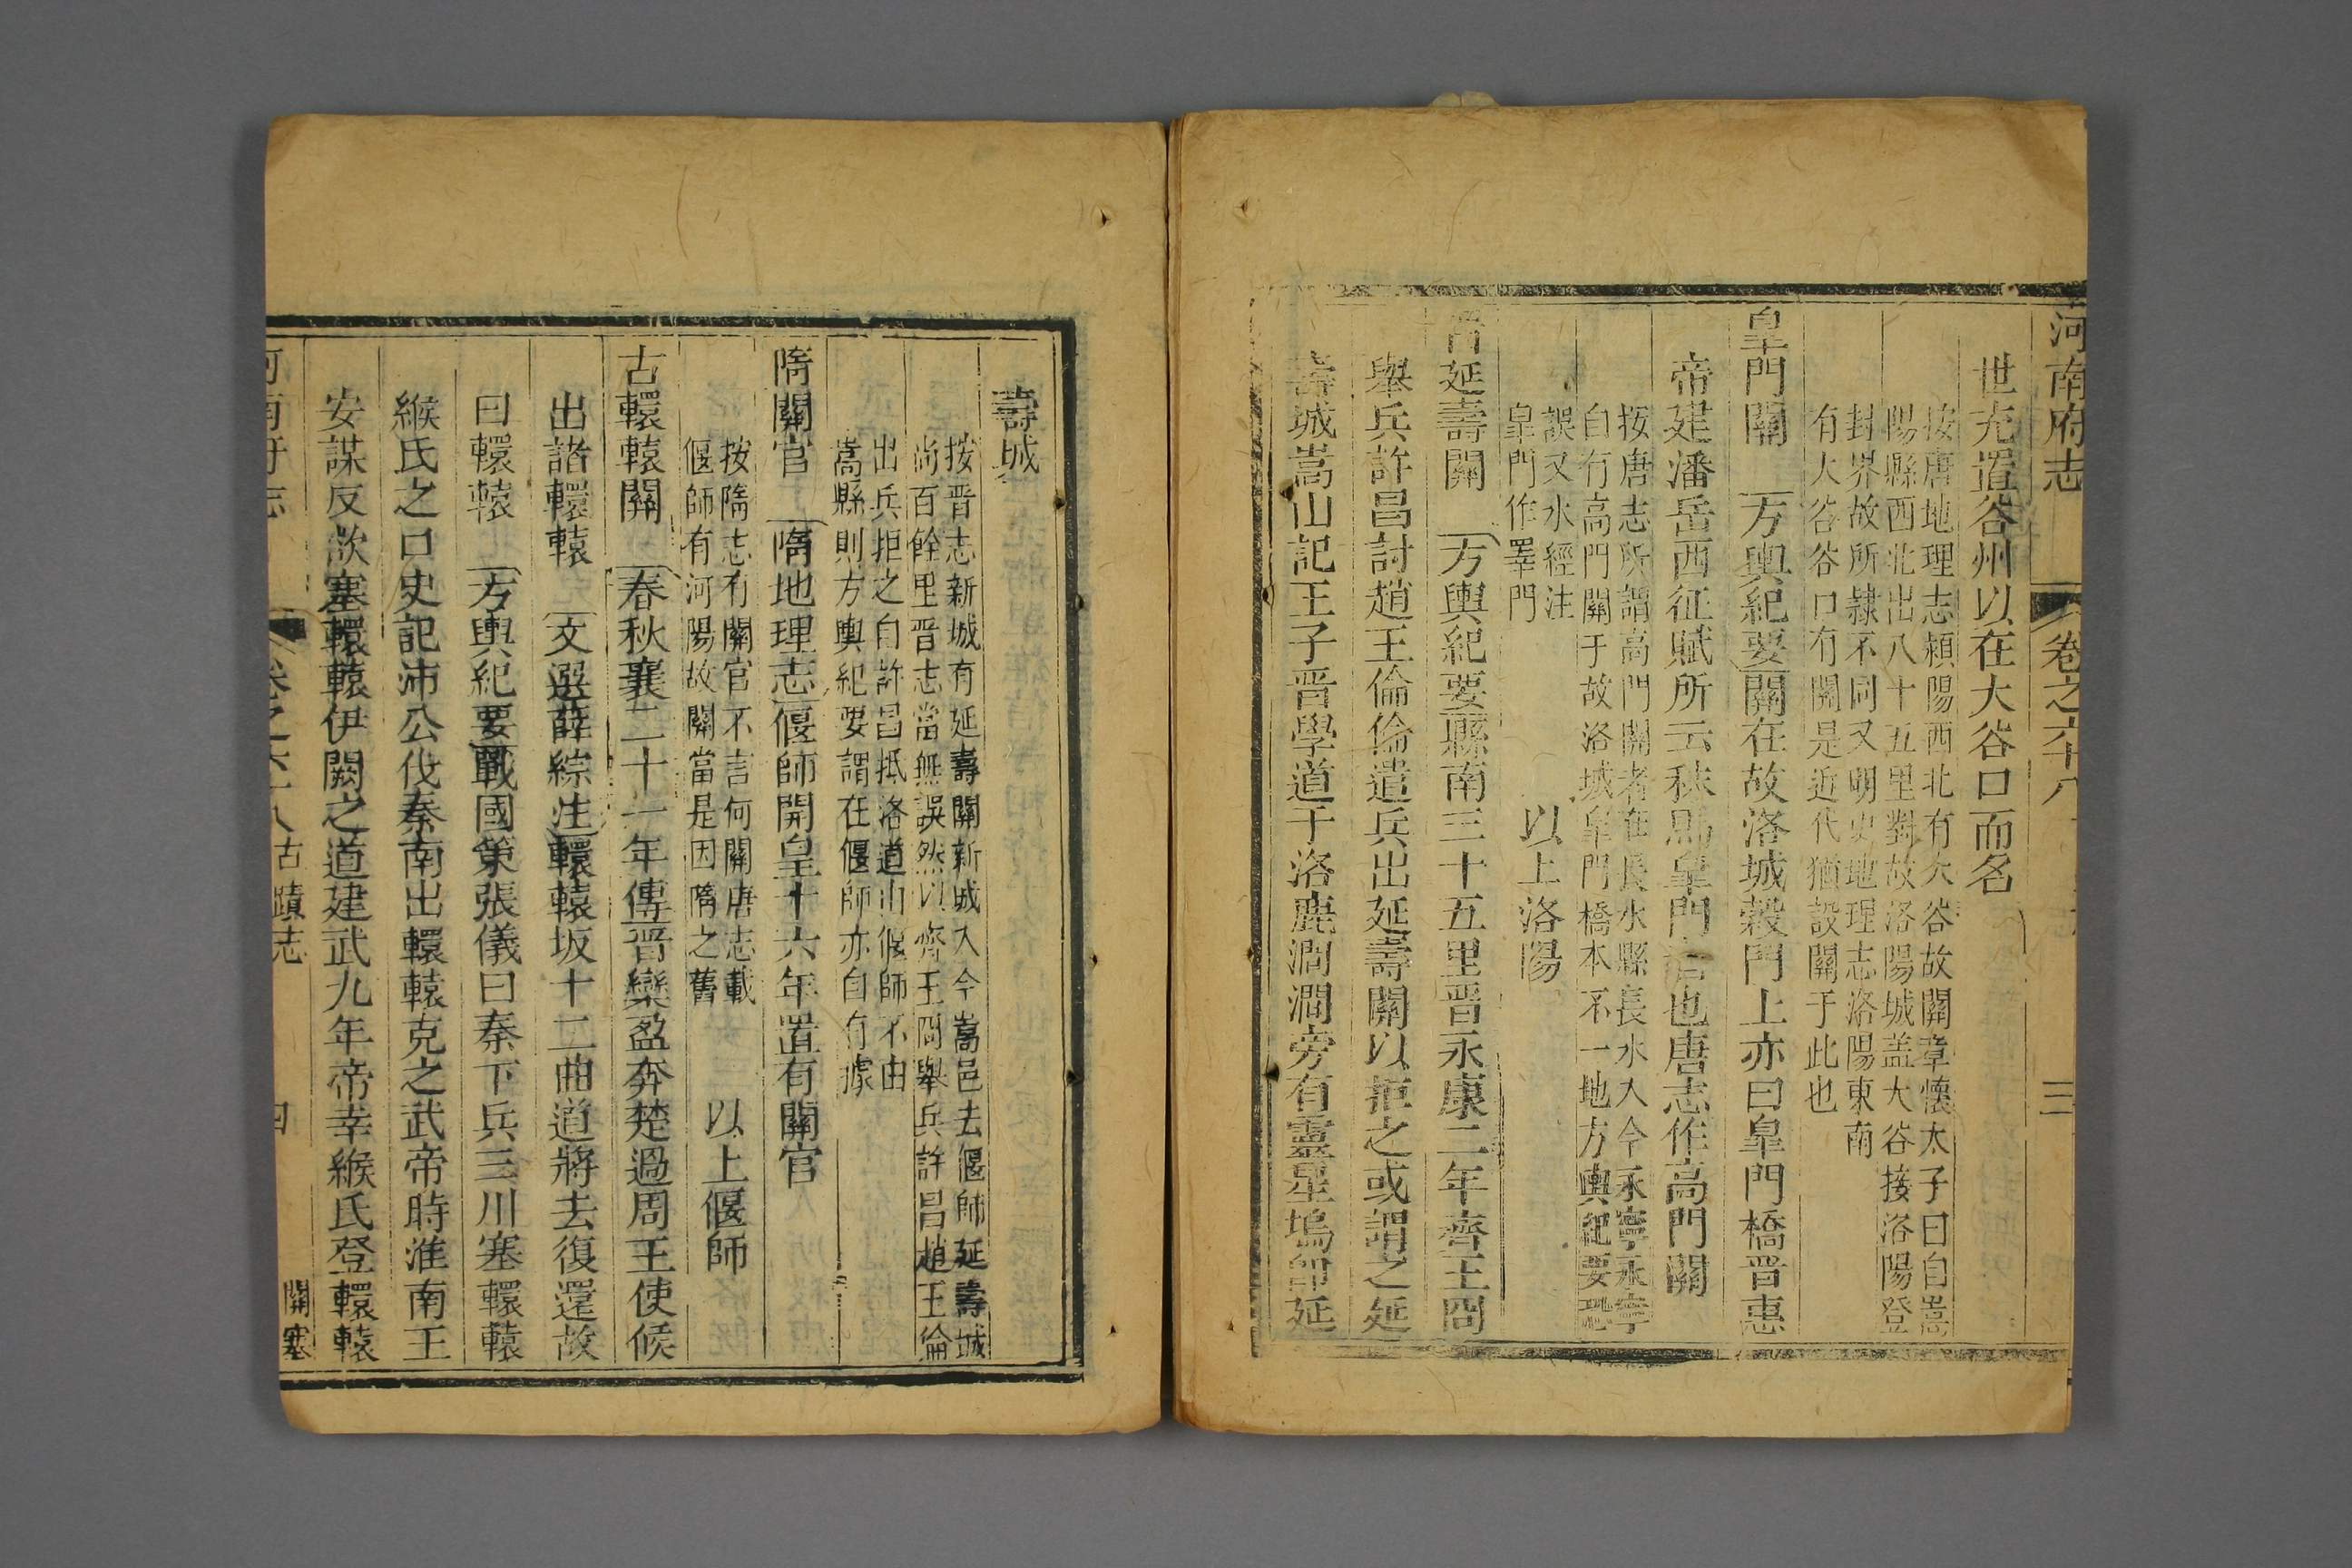 河南府志
卷之六十八
三
世充置谷州以在大谷口而名
按唐地理志潁陽西北有大谷故關章懷太子曰自嵩
陽縣西北出八十五里對故洛陽城蓋大谷接洛陽登
封界故所隸不同又明史地理志洛陽東南
有大谷谷口有關是近代猶設關于此也
皇門關 方輿紀要關在故洛城穀門上亦曰皐門橋晋惠
帝建潘岳西征賦所云秣馬皐門者也唐志作高門關
按唐志所謂高門關者在長水縣長水入今永寧永寧
自有高門關于故洛城皐門橋本不一地方輿紀要恐
誤又水經注
皐門作睪門
以上洛陽
晋延壽關 方輿紀要縣南三十五里晋永康二年齊王冏
舉兵許昌討趙王倫倫遣兵出延壽關以拒之或謂之延
壽城嵩山記王子晋學道于洛鹿澗澗旁有靈星塢卽延
壽城
按晋志新城有延壽關新城入今嵩邑去偃師延壽城
尚百餘里晋志當無誤然以齊王冏舉兵許昌趙王倫
出兵拒之自許昌抵洛道由偃師不由
嵩縣則方輿紀要謂在偃師亦自有據
隋關官 隋地理志偃師開皇十六年置有關官
按隋志有關官不言何關唐志載
偃師有河陽故關當是因隋之舊
以上偃師
古轘轅關 春秋襄二十一年傳晋欒盈奔楚過周王使候
出諸轘轅 文選薛綜注轘轅坂十二曲道將去復還故
曰轘轅 方輿紀要戰國策張儀曰秦下兵三川塞轘轅
緱氏之口史記沛公伐秦南出轘轅克之武帝時淮南王
安謀反欲塞轘轅伊闕之道建武九年帝幸緱氏登轘轅
河南府志
卷之六十八古蹟志
四
關塞